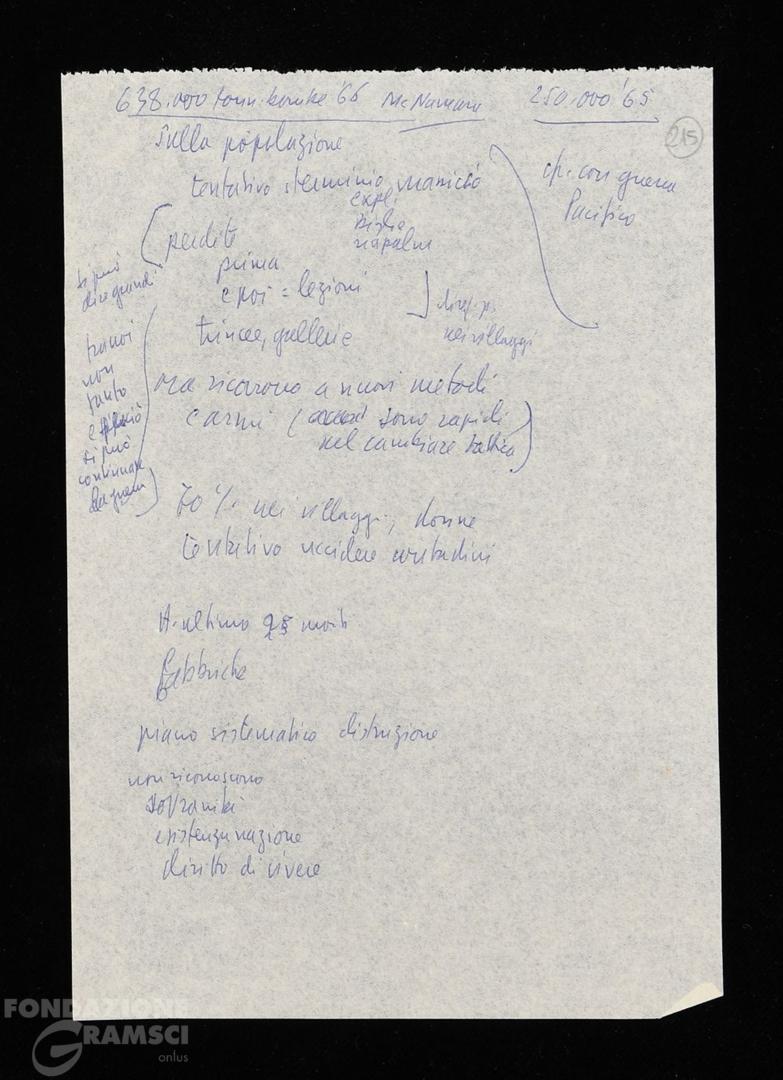 638.000 tonn. bombe '66 McNamara 250.000 '65
215
sulla popolazione
tentativo sterminio massiccio
cfr. con guerra
Pacifico
expl.
biglie
napalm
perdite
prima
e poi = lezioni
si può
dire grandi
trincee, gallerie
nei villaggi
ma ricorrono a nuovi metodi
e armi ( sono rapidi
nel cambiare tattica)
non
tanto
e perciò
si può
continuare
la guerra
70% nei villaggi, donne
tentativo uccidere contadini
H. ultimo 25 morti
fabbriche
piano sistematico distruzione
non riconoscono
sovranità
esistenza nazione
diritto di vivere
FONDAZIONE
GRAMSCI
onlus